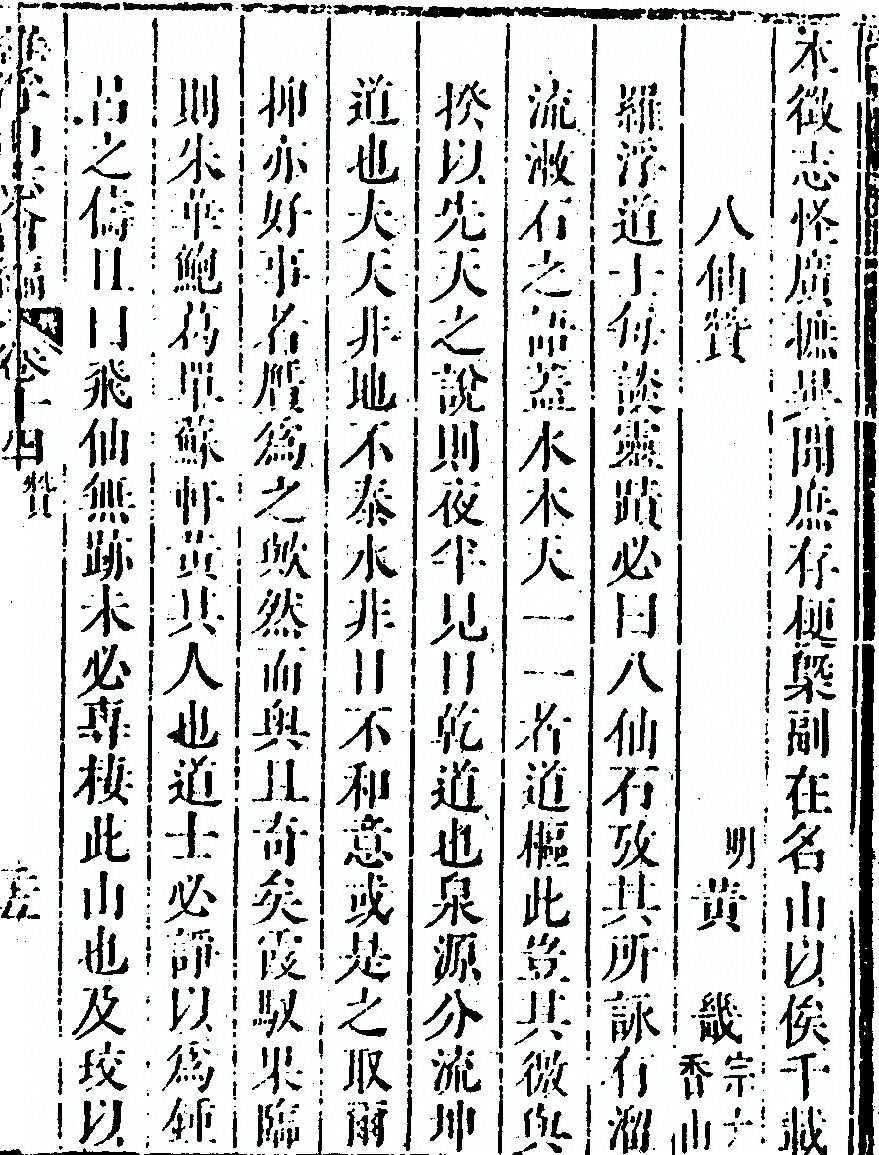 本徵志怪廣摭異聞庶存梗槩副在名山以俟千載
八仙贊
明黃畿宗大香山
羅浮道士每談靈蹟必曰八仙石攷其所詠有溜
流漱石之語蓋水木天一一者道樞此豈其微與
揆以先天之說則夜半見日乾道也泉源分流坤
道也夫天非地不泰水非日不和意或是之取爾
抑亦好事者贗為之歟然而輿且奇矣霞馭果臨
則朱華鮑葛單蘇軒黃其人也道士必諍以為鍾
呂之儔且曰飛仙無跡未必專棲此山也及珓以
羅浮山志會編 卷十四 贊 五